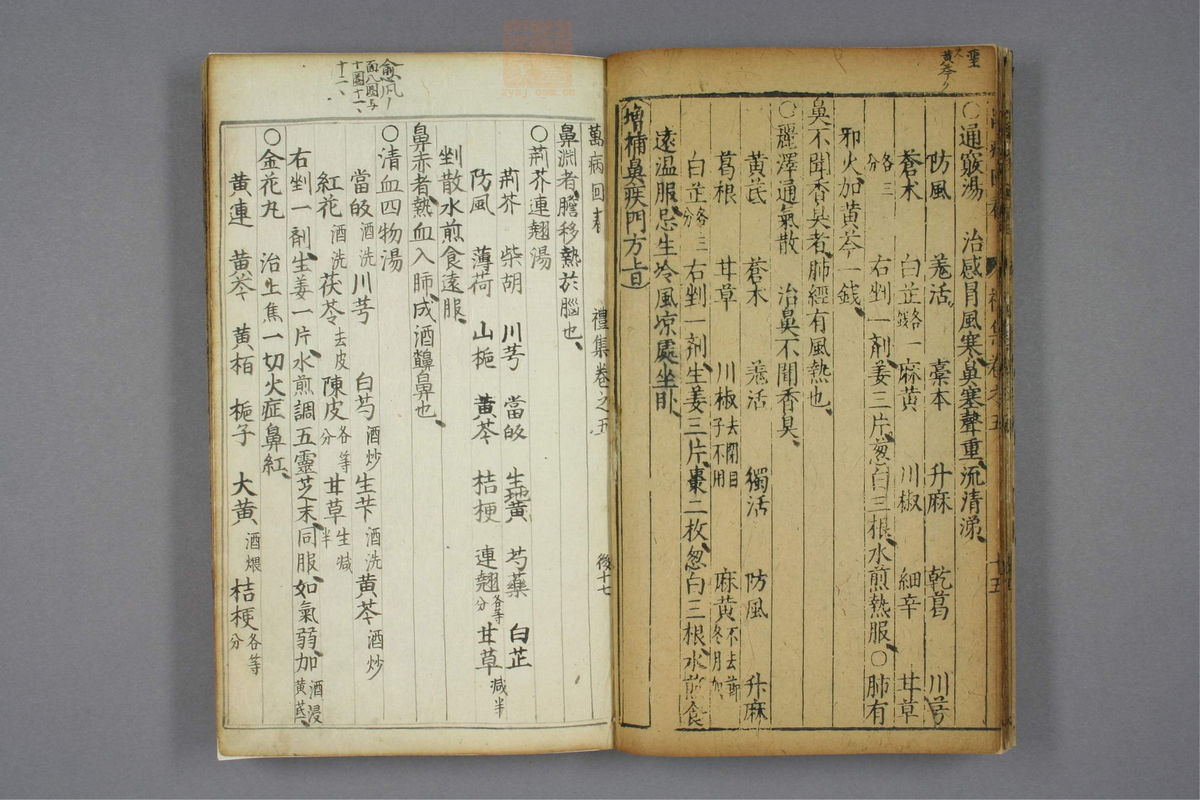 ○通竅湯　治感冒風寒、鼻塞聲重、流清涕、
防風　羗活　藁本　升麻　乾葛　川芎
蒼朮　白芷各一錢　麻黄　川椒　細辛　甘草
各三分　右剉一剤、姜三片、葱白三根、水煎熱服、○肺有
邪火加黄芩一錢、
鼻不聞香臭者、肺經有風熱也、
○麗澤通氣散　治鼻不聞香臭、
黄芪　蒼木　羗活　獨活　防風　升麻
葛根　甘草　川椒去閉目子不用　麻黄不去節冬月加
白芷各三分　右剉一剤、生姜三片、棗二枚、葱白三根、水煎食
遠温服、忌生冷風凉處坐卧、
増補鼻疾門方
萬病回春　禮集卷之五　後十七
鼻淵者、膽移熱於腦也、
○荊芥連翹湯
荊芥　柴胡　川芎　當皈　生地黄　芍藥　白芷
防風　薄荷　山梔　黄芩　桔梗　連翹各等分　甘草減半
剉散水煎食遠服、
鼻赤者、熱血入肺、成酒齄鼻也、
○清血四物湯
當皈酒洗　川芎　白芍酒炒　生芐酒洗　黄芩酒炒
紅花酒洗　茯苓去皮　陳皮各等分　甘草生減半
右剉一剤、生姜一片、水煎調五靈芝末、同服、如氣弱、加酒浸黄芪、
○金花丸　治上焦一切火症鼻紅、
黄連　黄芩　黄栢　梔子　大黄酒煨　桔梗各等分